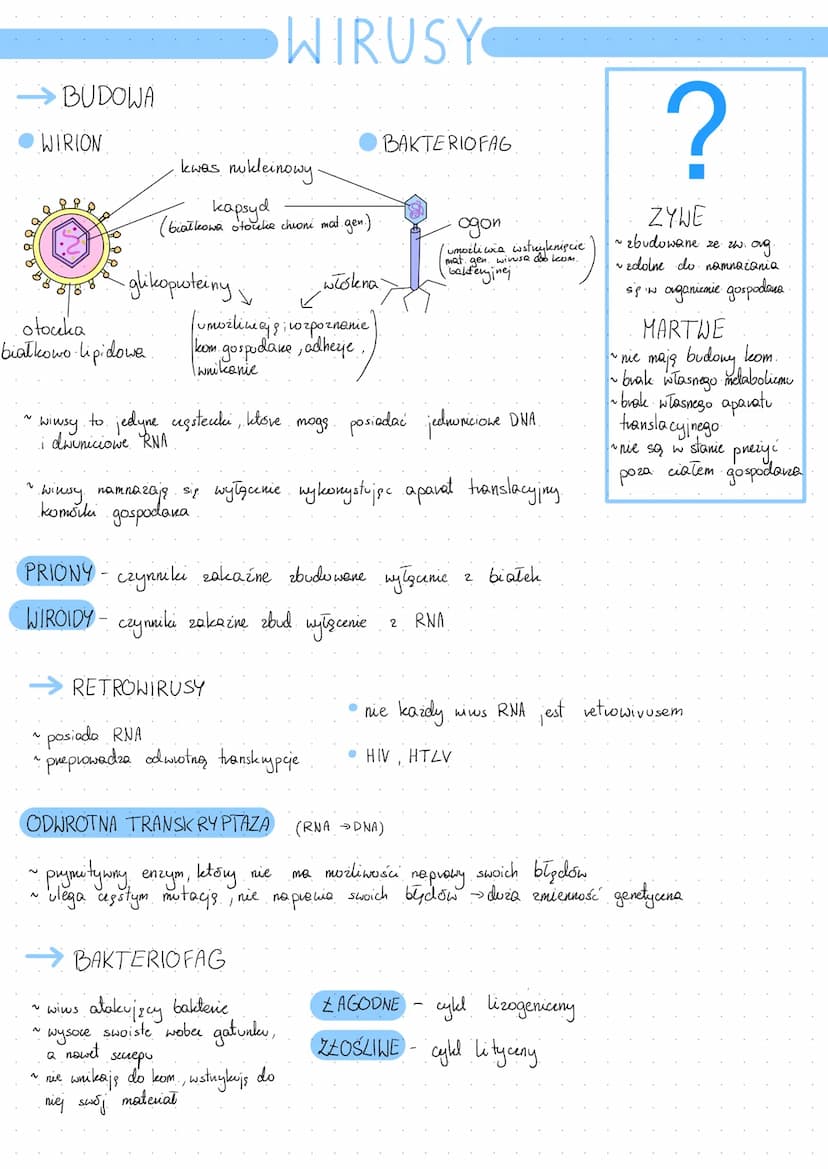 WIRUSY
→ BUDOWA
WIRION
BAKTERIOFAG
kwas nukleinowy
kapsyd
(białkowa otoczka chroni mat. gen.)
ogon
(umożliwia wstrzyknięcie
mat. gen. wirusa do kom.
bakteryjnej)
glikoproteiny
włókna
otoczka
białkowo-lipidowa
(umożliwiają rozpoznanie
kom. gospodarza, adhezję,
wnikanie)
?
ŻYWE
~ zbudowane ze zw. org.
~ zdolne do namnażania
się w organizmie gospodarza
MARTWE
~ nie mają budowy kom.
~ brak własnego metabolizmu
~ brak własnego aparatu
translacyjnego
~ nie są w stanie przeżyć
poza ciałem gospodarza
~ wirusy to jedyne cząsteczki, które mogą posiadać jednoniciowe DNA
i dwuniciowe RNA
~ wirusy namnażają się wyłącznie wykorzystując aparat translacyjny
komórki gospodarza
PRIONY - czynniki zakaźne zbudowane wyłącznie z białek
WIROIDY - czynniki zakaźne zbud wyłącznie z RNA
→ RETROWIRUSY
~ posiada RNA
~ przeprowadza odwrotną transkrypcję
• nie każdy wirus RNA jest retrowirusem
• HIV, HTLV
ODWROTNA TRANSKRYPTAZA (RNA → DNA)
~ prymitywny enzym, który nie ma możliwości naprawy swoich błędów
~ ulega częstym mutacją, nie naprawia swoich błędów → duża zmienność genetyczna
→ BAKTERIOFAG
~ wirus atakujący bakterie
~ wysoce swoiste wobec gatunku,
a nawet szczepu
~ nie wnikają do kom., wstrzykują do
niej swój materiał
ŁAGODNE - cykl lizogeniczny
ZŁOŚLIWE - cykl lityczny